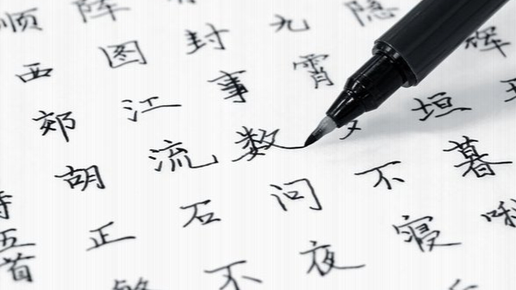 顺 阵
西 图 封 九 隐
郊 江 事 霄
胡 流 数 垣
正 石 问 不 暮
五首 不 夜 寝